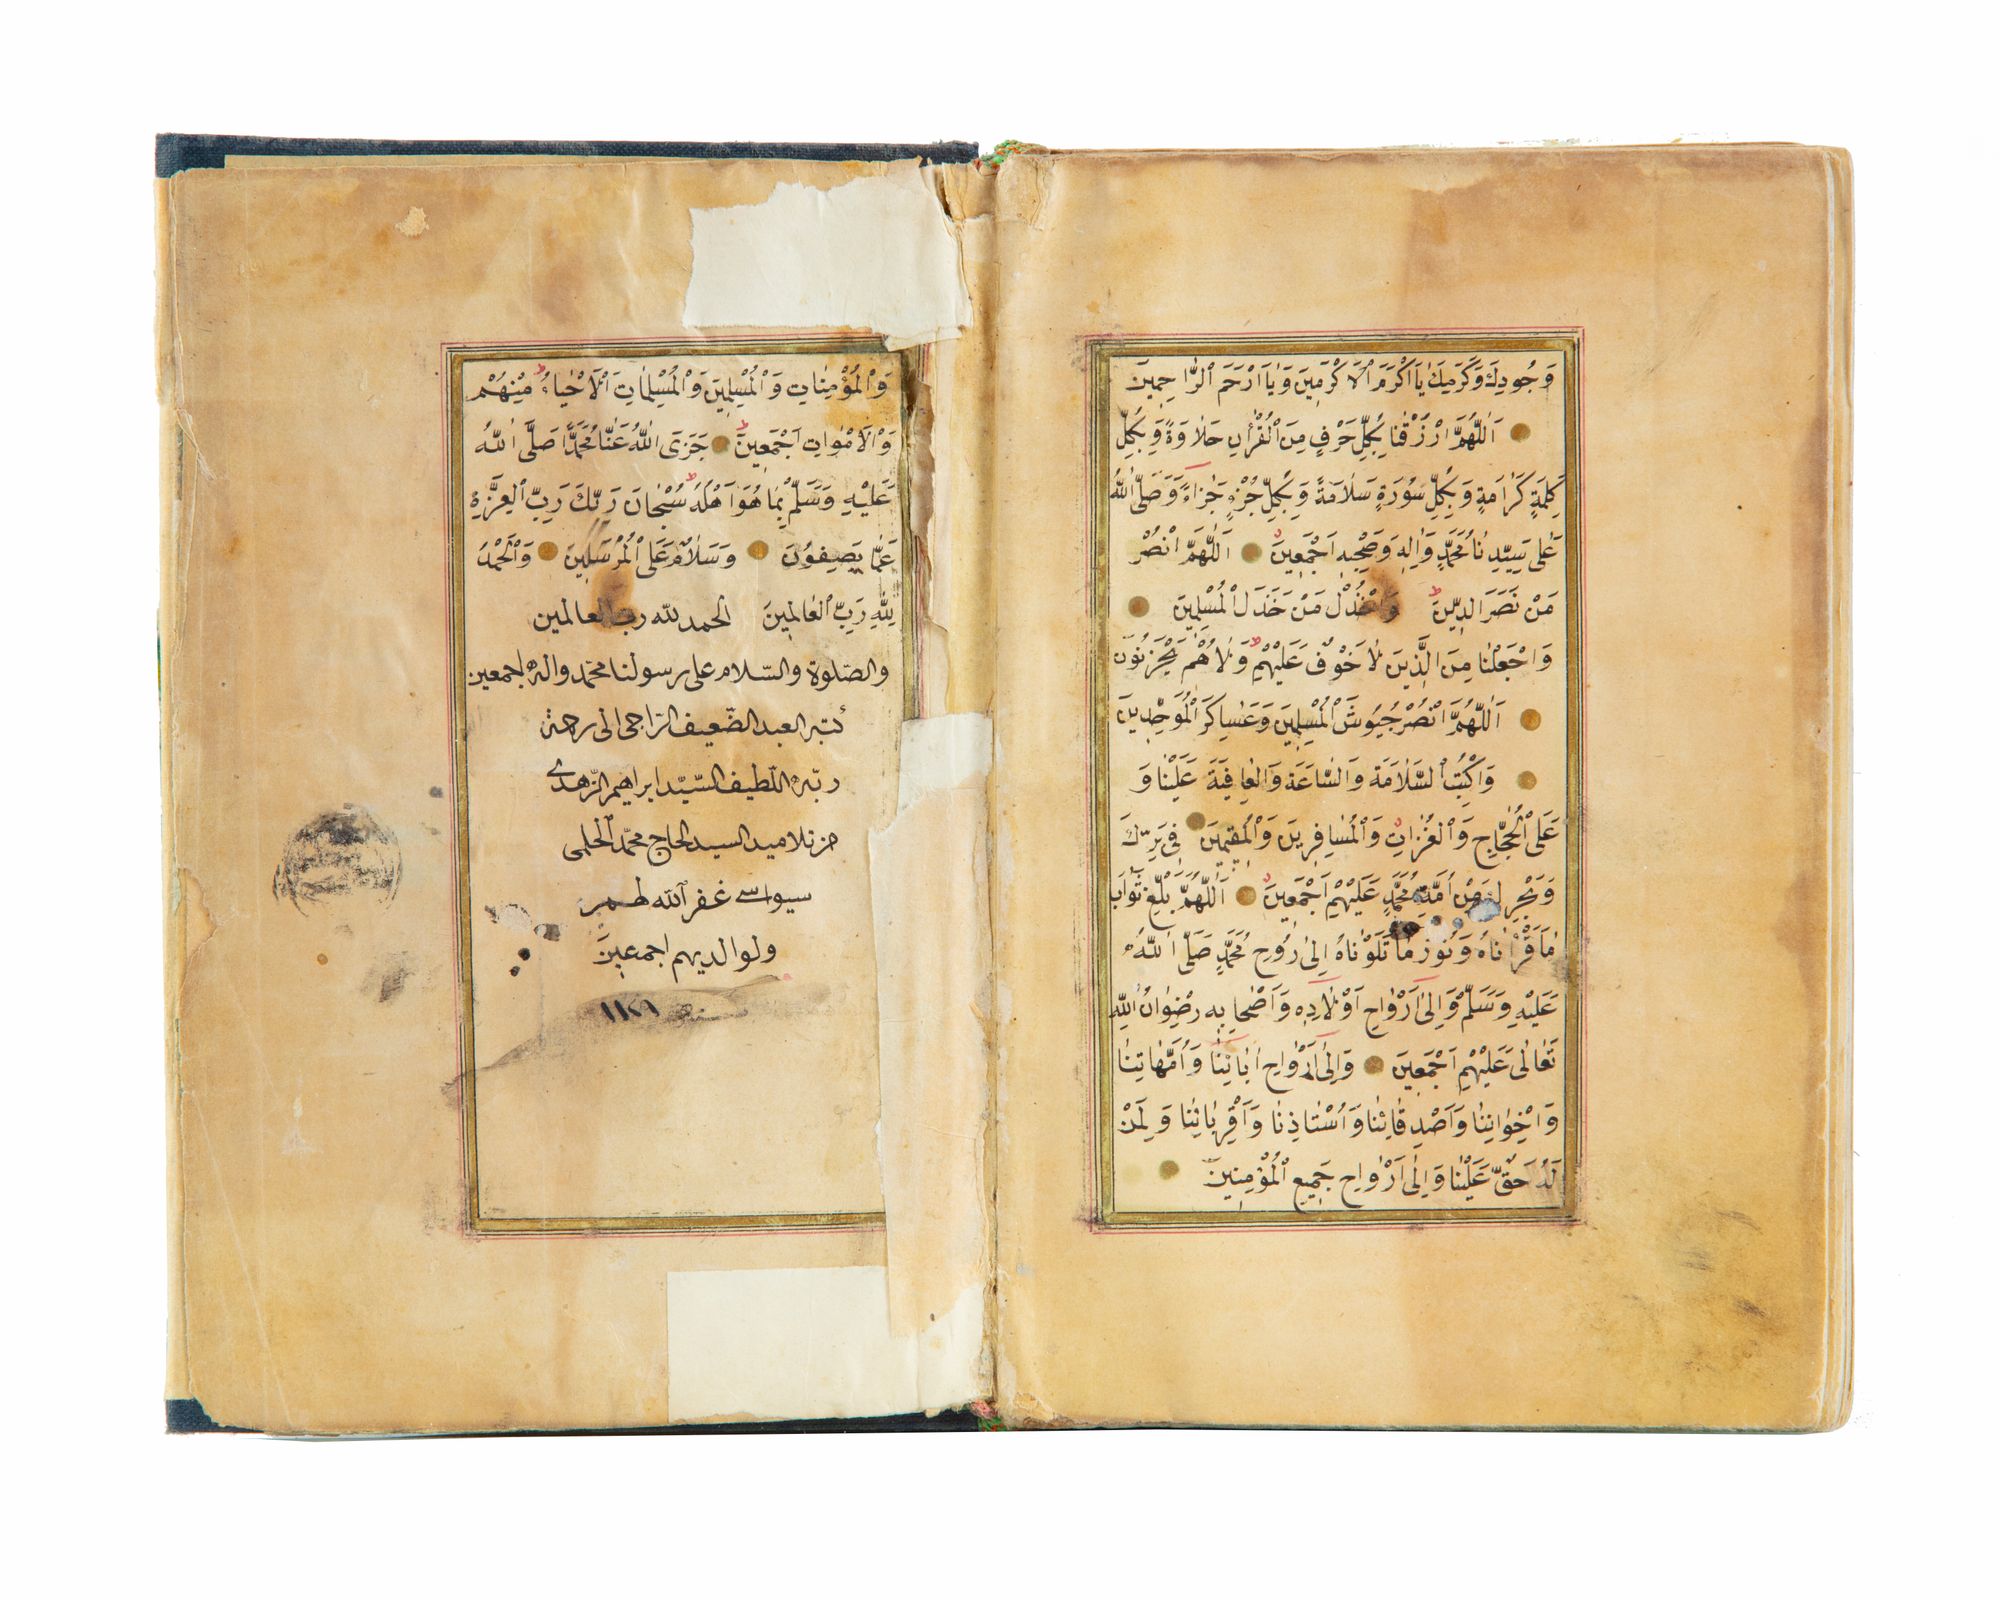 وَجُودِكَ وَكَرَمِكَ يَا اَكْرَمَ الْاَكْرَمِينَ وَيَا اَرْحَمَ الرَّاحِمِينَ
اَللّٰهُمَّ ارْزُقْنَا بِكُلِّ حَرْفٍ مِنَ الْقُرْاٰنِ حَلَاوَةً وَبِكُلِّ
كَلِمَةٍ كَرَامَةً وَبِكُلِّ سُورَةٍ سَلَامَةً وَبِكُلِّ جُزْءٍ جَزَاءً وَصَلَّى اللّٰهُ
عَلٰى سَيِّدِنَا مُحَمَّدٍ وَاٰلِهِ وَصَحْبِهِ اَجْمَعِينَ اَللّٰهُمَّ انْصُرْ
مَنْ نَصَرَ الدِّينَ وَاخْذُلْ مَنْ خَذَلَ الْمُسْلِمِينَ
وَاجْعَلْنَا مِنَ الَّذِينَ لَا خَوْفٌ عَلَيْهِمْ وَلَا هُمْ يَحْزَنُونَ
اَللّٰهُمَّ انْصُرْ جُيُوشَ الْمُسْلِمِينَ وَعَسَاكِرَ الْمُوَحِّدِينَ
وَاكْتُبِ السَّلَامَةَ وَالسَّاعَةَ وَالْعَافِيَةَ عَلَيْنَا وَ
عَلَى الْحُجَّاجِ وَالْغُزَاتِ وَالْمُسَافِرِينَ وَالْمُقِيمِينَ فِى بَرِّكَ
وَبَحْرِكَ مِنْ اُمَّةِ مُحَمَّدٍ عَلَيْهِمْ اَجْمَعِينَ اَللّٰهُمَّ بَلِّغْ ثَوَابَ
مَا قَرَأْنَاهُ وَنُورَ مَا تَلَوْنَاهُ اِلٰى رُوحِ مُحَمَّدٍ صَلَّى اللّٰهُ
عَلَيْهِ وَسَلَّمَ وَاِلٰى اَرْوَاحِ اَوْلَادِهِ وَاَصْحَابِهِ رِضْوَانُ اللّٰهِ
تَعَالٰى عَلَيْهِمْ اَجْمَعِينَ وَاِلٰى اَرْوَاحِ اٰبَائِنَا وَاُمَّهَاتِنَا
وَاِخْوَانِنَا وَاَصْدِقَائِنَا وَاُسْتَاذِنَا وَاَقْرِبَائِنَا وَلِمَنْ
لَهُ حَقٌّ عَلَيْنَا وَاِلٰى اَرْوَاحِ جَمِيعِ الْمُؤْمِنِينَ
وَالْمُؤْمِنَاتِ وَالْمُسْلِمِينَ وَالْمُسْلِمَاتِ اَلْاَحْيَاءُ مِنْهُمْ
وَالْاَمْوَاتِ اَجْمَعِينَ جَزَى اللّٰهُ عَنَّا مُحَمَّدًا صَلَّى اللّٰهُ
عَلَيْهِ وَسَلَّمَ بِمَا هُوَ اَهْلُهُ سُبْحَانَ رَبِّكَ رَبِّ الْعِزَّةِ
عَمَّا يَصِفُونَ وَسَلَامٌ عَلَى الْمُرْسَلِينَ وَالْحَمْدُ
لِلّٰهِ رَبِّ الْعَالَمِينَ الحمد لله رب العالمين
والصّلوة والسّلام على رسولنا محمّد واله اجمعين
كتبه العبد الضّعيف الرّاجى الى رحمة
ربّه اللّطيف السّيّد ابراهيم الزّهدى
من تلاميذ السيد الحاج محمّد الحلمى
سيواسى غفر الله لهم
ولوالديهم اجمعين
سنه